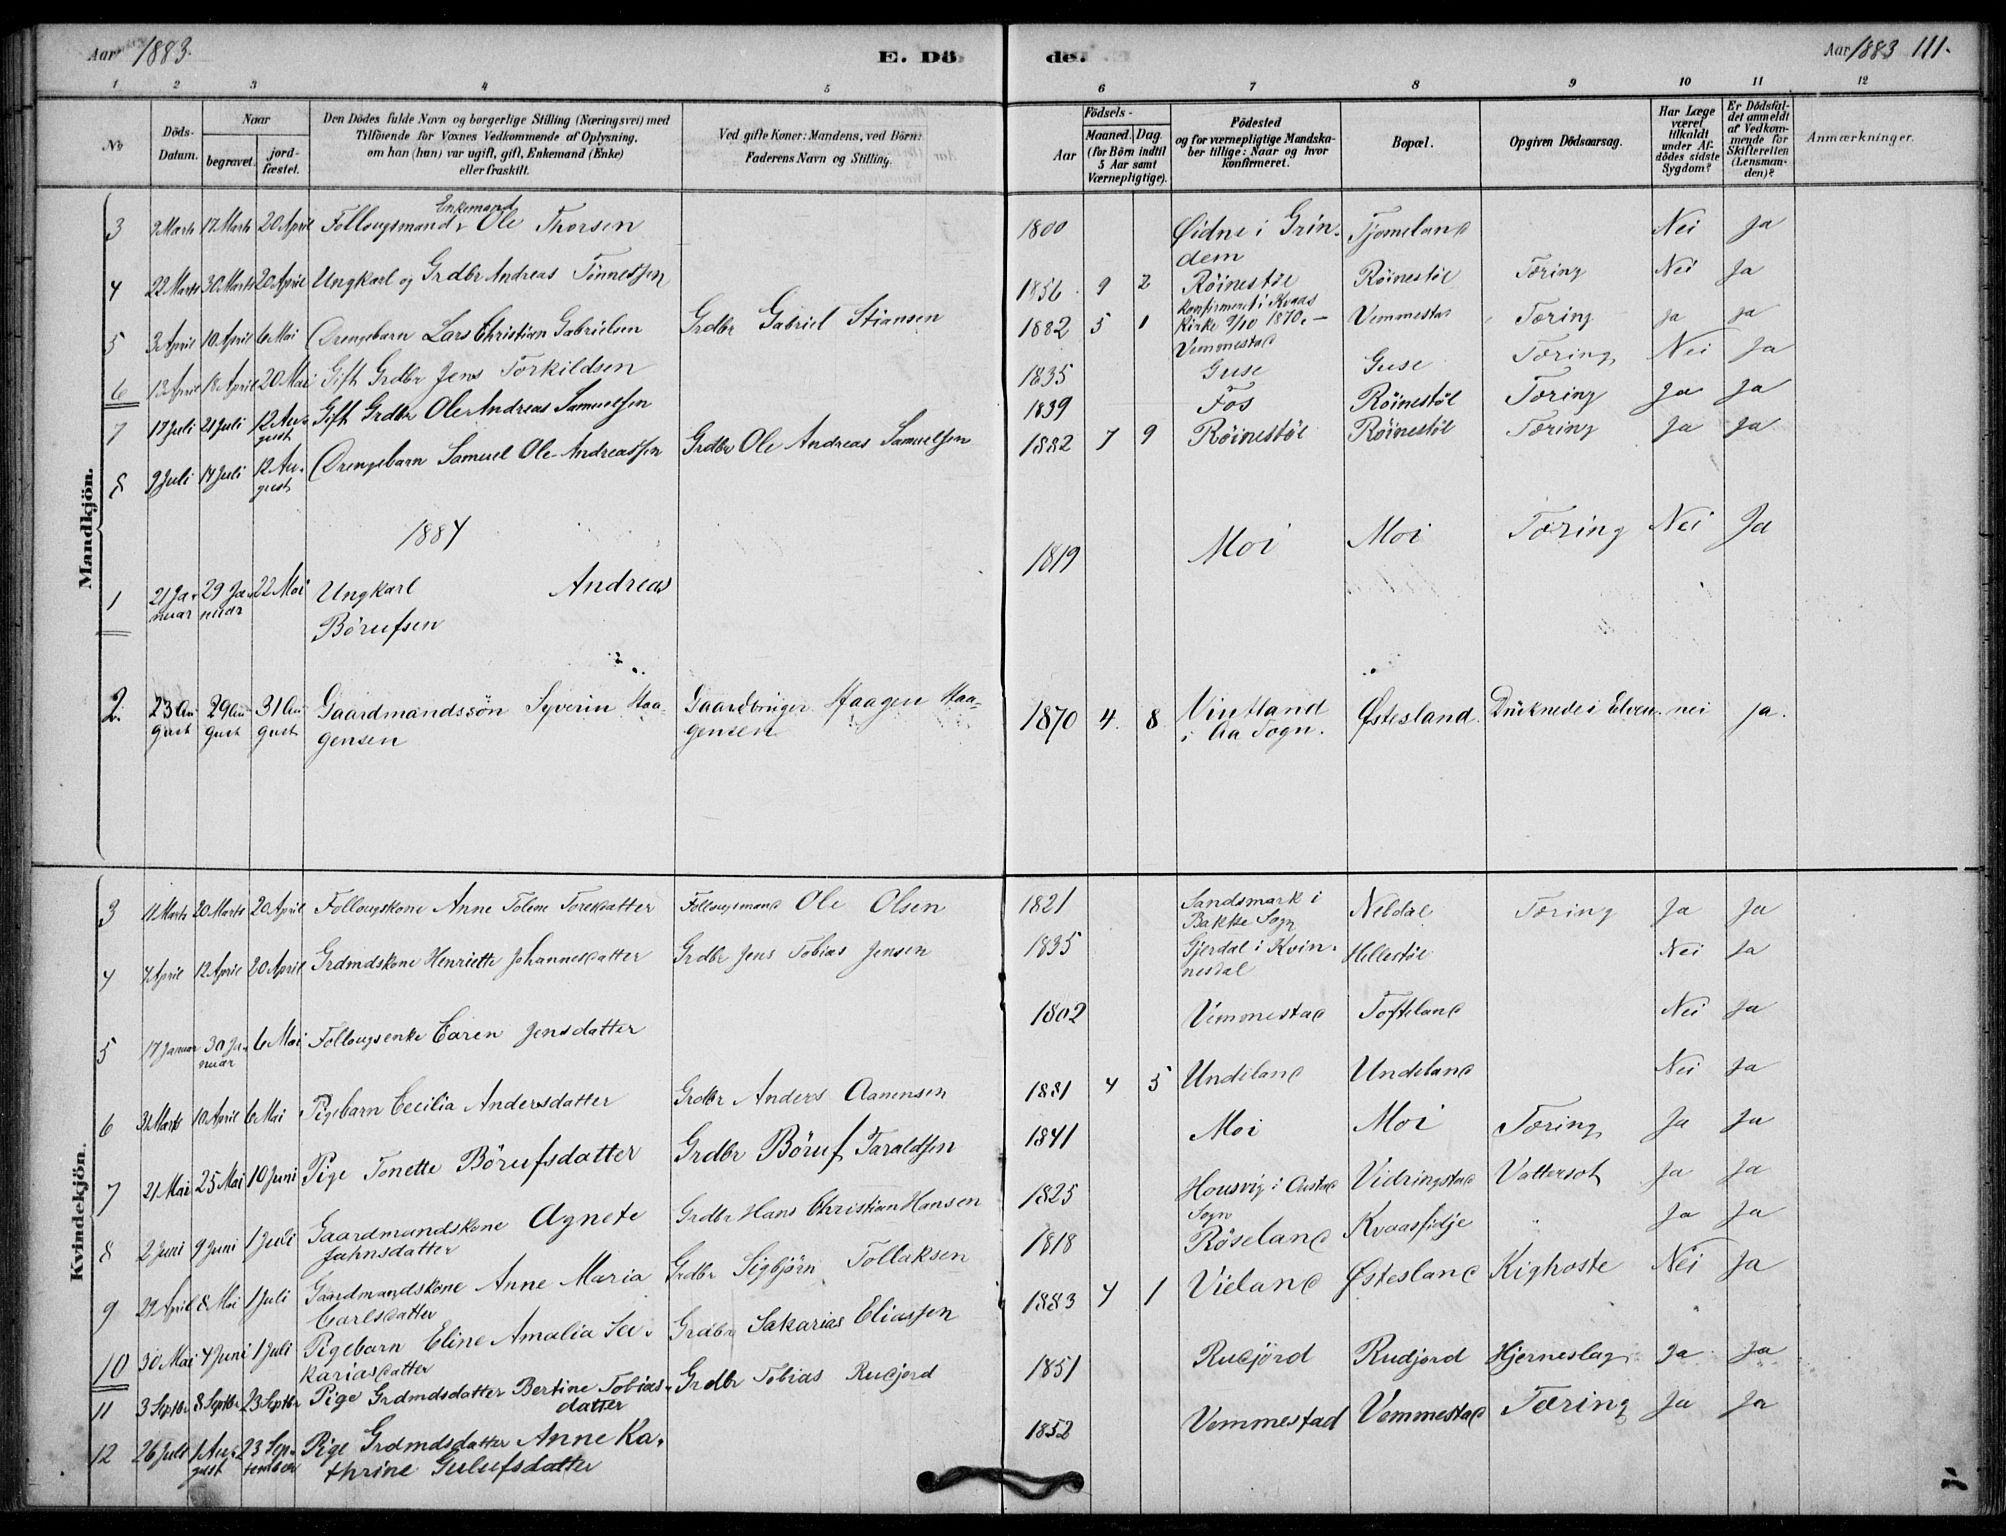 Aar 1883.
E. Dö
de.
Aar 1883 111.
1 2 3 4 5 6 7 8 9 10 11 12
No
Döds-Datum.
Naar
begravet. jord-fæstet.
Den Dödes fulde Navn og borgerlige Stilling (Næringsvei) med
Tilföiende for Voxnes Vedkommende af Oplysning,
om han (hun) var ugift, gift, Enkemand (Enke)
eller fraskilt.
Ved gifte Koner: Mandens, ved Börn:
Faderens Navn og Stilling.
Födsels-
Aar
Maaned. Dag.
(for Börn indtil
5 Aar samt
Værnepligtige).
Födested
og for værnepligtige Mandska-
ber tillige: Naar og hvor
konfirmeret.
Bopæl.
Opgiven Dödsaarsag.
Har Læge
været
tilkaldt
under Af-
dödes sidste
Sygdom?
Er Dödsfal-
det anmeldt
af Vedkom-
mende for
Skifteretten
(Lensman-
den)?
Anmærkninger.
Mandkjön.
3 9 Marts 17 Marts 20 April Follougsmand, Enkemand Ole Thorsen 1800 Øidne i Grin-dem Tjomeland Nei Ja
4 22 Marts 30 Marts 20 April Ungkarl og Grdbr Andreas Tönnessen 1856 9 2 Röinestöl konfirmeret i Kvaas Kirke 9/10 1870. Röinestöl Tæring Nei Ja
5 3 April 10 April 6 Mai Drengebarn Lars Christian Gabrielsen Grdbr Gabriel Stiansen 1882 5 1 Vemmestad Vemmestad Tæring Ja Ja
6 13 April 18 April 20 Mai Gift Grdbr Jens Torkildsen 1835 Guse Guse Tæring Nei Ja
7 17 Juli 21 Juli 12 August Gift Grdbr Ole Andreas Samuelsen 1839 Fos Röinestöl Tæring Ja Ja
8 9 Juli 17 Juli 12 August Drengebarn Samuel Ole Andreassen Grdbr Ole Andreas Samuelsen 1882 7 9 Röinestöl Röinestöl Tæring Ja Ja
1884
1 21 Januar 29 Januar 22 Mai Ungkarl Andreas 1819 Moi Moi Tæring Nei Ja
Börufsen
2. 23 August 29 August 31 August Gaardmandssön Syverin Haa- Gaardbruger Haagen Haa- 1870 4. 8 Vintland Østesland. Druknede i Elven. nei ja.
gensen gensen i Aa Sogn.
Kvindekjön.
3 11 Marts 20 Marts 20 April Follougskone Anne Tolene Toresdatter Follougsmand Ole Olsen 1821 Sandsmark i Bakke Sogn Nebdal Tæring Ja Ja
4 7 April 12 April 20 April Grdmdskone Henriette Johannesdatter Grdbr Jens Tobias Jensen 1835 Gjerdal i Kvin-nesdal Hellestöl Nei Ja
5 17 Januar 30 Januar 6 Mai Follougsenke Caren Jensdatter 1802 Vemmestad Tofteland Nei Ja
6 31 Marts 10 April 6 Mai Pigebarn Cecilia Andersdatter Grdbr Anders Aanensen 1881 4 5 Undeland Undeland Nei Ja
7 21 Mai 25 Mai 10 Juni Pige Tonette Börufsdatter Grdbr Böruf Taraldsen 1841 Moi Moi Tæring Ja Ja
8 2 Juni 9 Juni 1 Juli Gaardmandskone Agnete Grdbr Hans Christian Hansen 1825 Housvig i Austad Sogn Vidringstad Vattersot Ja Ja
Jahnsdatter
9 29 April 8 Mai 1 Juli Gaardmandskone Anne Maria Grdbr Sigbjörn Tollaksen 1818 Röseland Kvaasfidje " Ja Ja
Carlsdatter
10 30 Mai 4 Juni 1 Juli Pigebarn Eline Amalia Sa- Grdbr Sakarias Eliassen 1883 4 1 Vieland Østesland Kighoste Nei Ja
kariasdatter
11 3 Septbr 8 Septbr 23 Septbr Pige Grdmdsdatter Bertine Tobias- Grdbr Tobias Rudjord 1851 Rudjörd Rudjord Hjerneslag Ja Ja
datter
12 26 Juli 1 August 23 September Pige Grdmdsdatter Anne Ka- 1852 Vemmestad Vemmestad Tæring Ja Ja
thrine Gulufsdatter